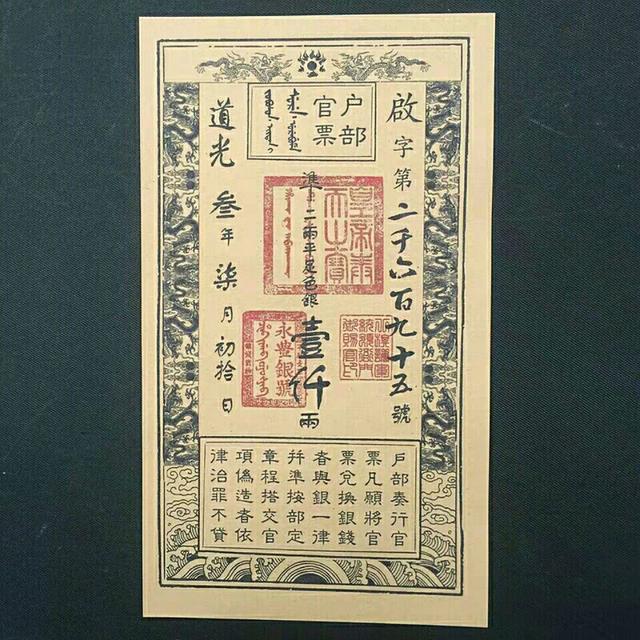 戶部
官票
啟字第二千六百九十五號
準二兩平足色銀壹仟兩
道光叁年柒月初拾日
皇帝奉
天之寶
永豐銀號
戶部奏行官
票凡願將官
票兌換銀錢
者與銀一律
幷準按部定
章程搭交官
項偽造者依
律治罪不貸